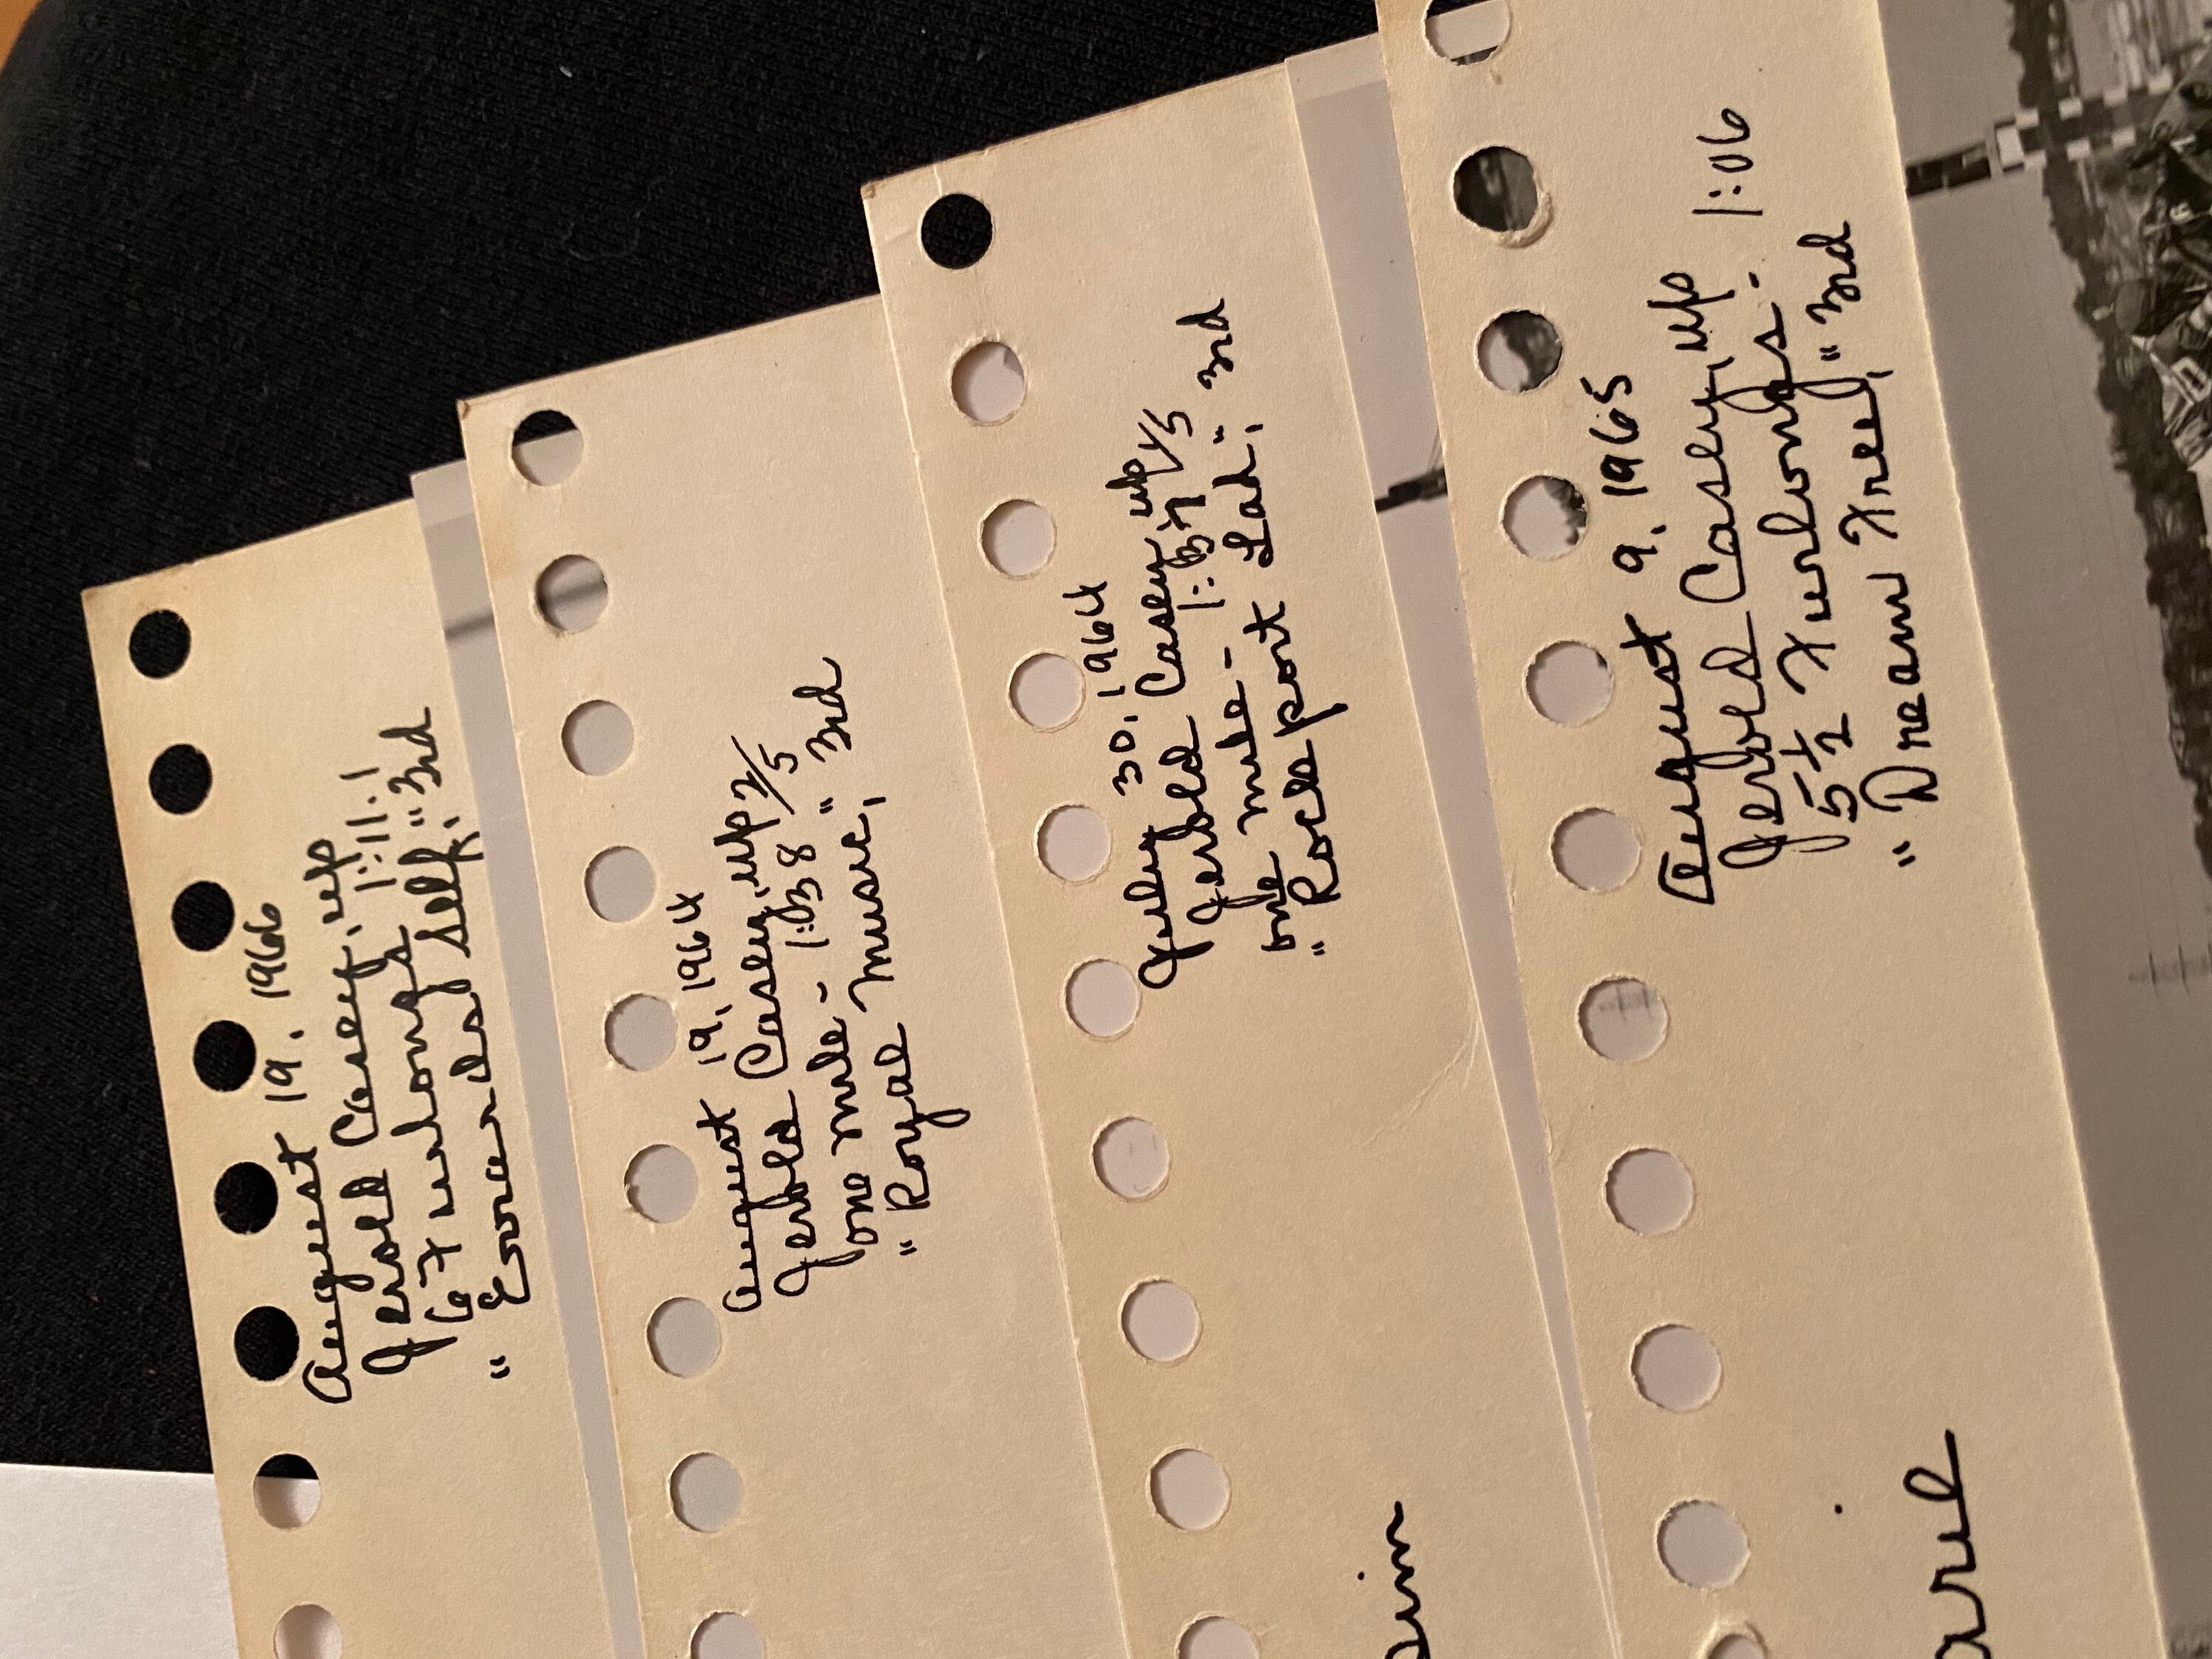 August 19, 1966
Jerold Casey, up
6 Furlongs 1:11.1
Self," 3rd
August 19, 1964
Jerold Casey, up
one mile - 1:38 2/5
"Royal Muse," 3rd
July 30, 1964
Jerold Casey up
one mile - 1:37 1/5
"Rockport Lad," 3rd
August 9, 1965
Jerold Casey, up
5 1/2 Furlongs - 1:06
"Dream Tree," 3rd
arie